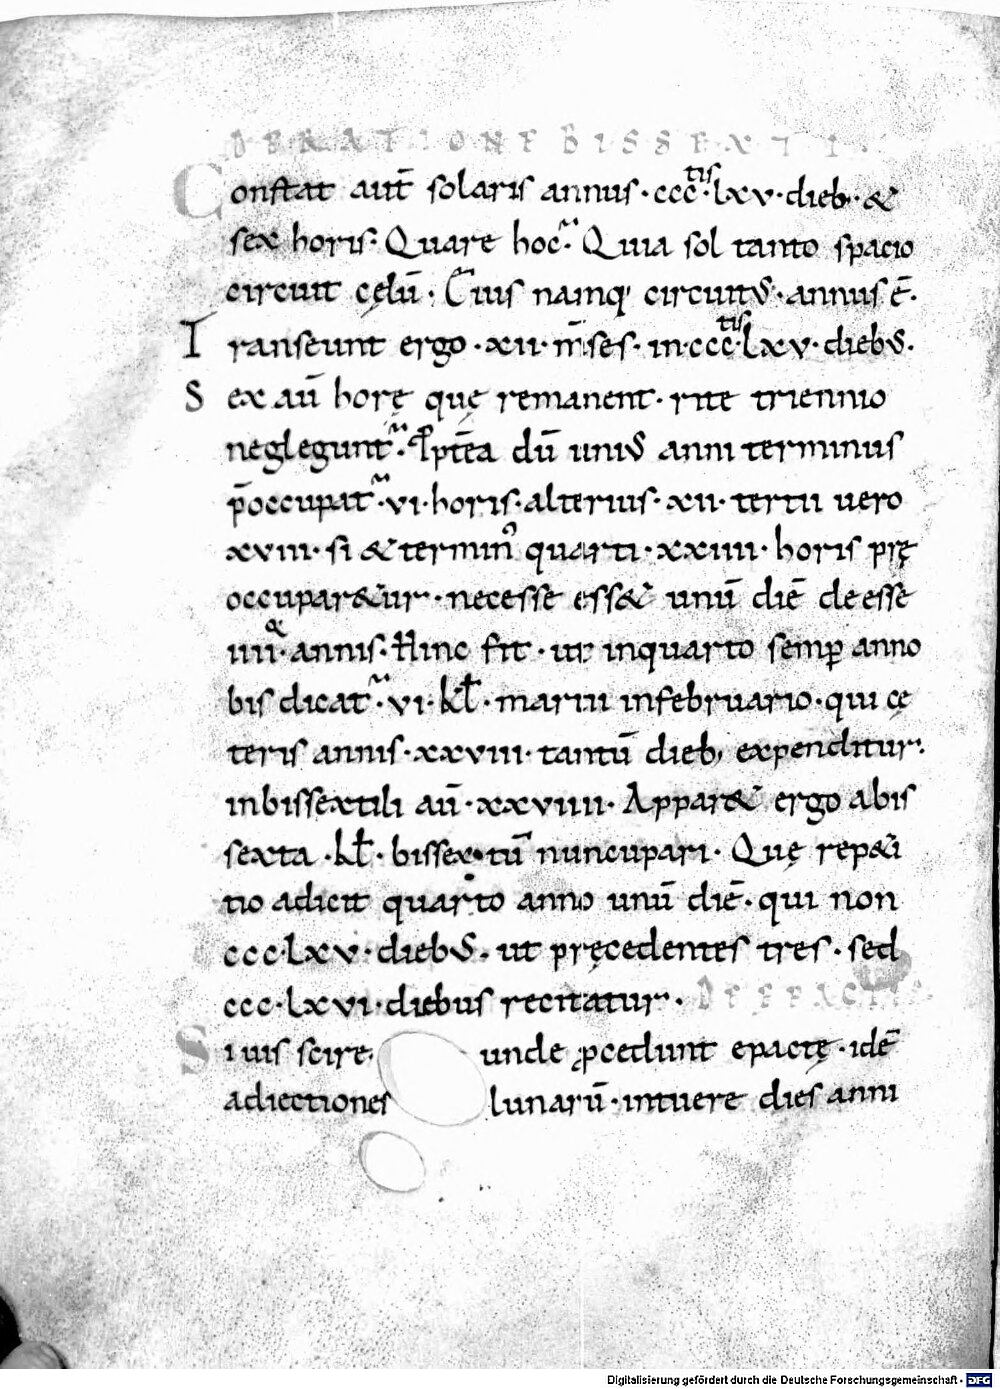 DE RATIONE BISSEXTI.
Constat aut̄ solaris annus· ccc·tis lxv· dieb· &
sex horis· Quare hoc· Quia sol tanto spacio
circuit cęlū· Cuius namq; circuitꝰ· annus ē·
Transeunt ergo ·xii· m̄ses· in ccc·tis lxv· diebꝰ·
Sex aū horę quę remanent· rite triennio
neglegunt᷑· Ppt̄ea dū uniꝰ anni terminus
p̄occupat᷑· vi· horis· alterius· xii· tertii uero
xviii· si & termin᷒ quarti· xxiiii· horis prę
occupar&ur· necesse ess& unū diē deesse
iiii· annis· Hinc fit· ut inquarto semꝑ anno
bis dicat᷑· vi· kł· martii infebruario· qui cę
teris annis· xxviii· tantū dieb; expenditur·
inbissextili aū· xxviiii· Appar& ergo abis
sexta ·kł· bissextū nuncupari· Quę rep&i
tio adicit quarto anno unū diē· qui non
ccc·lxv· diebꝰ· ut pręcedentes tres· sed
ccc·lxvi· diebus recitatur· DE EPACTIS.
Si uis scire· unde ꝓcedunt epactę· idē
adiectiones lunarū· intuere dies anni
Digitalisierung gefördert durch die Deutsche Forschungsgemeinschaft · DFG